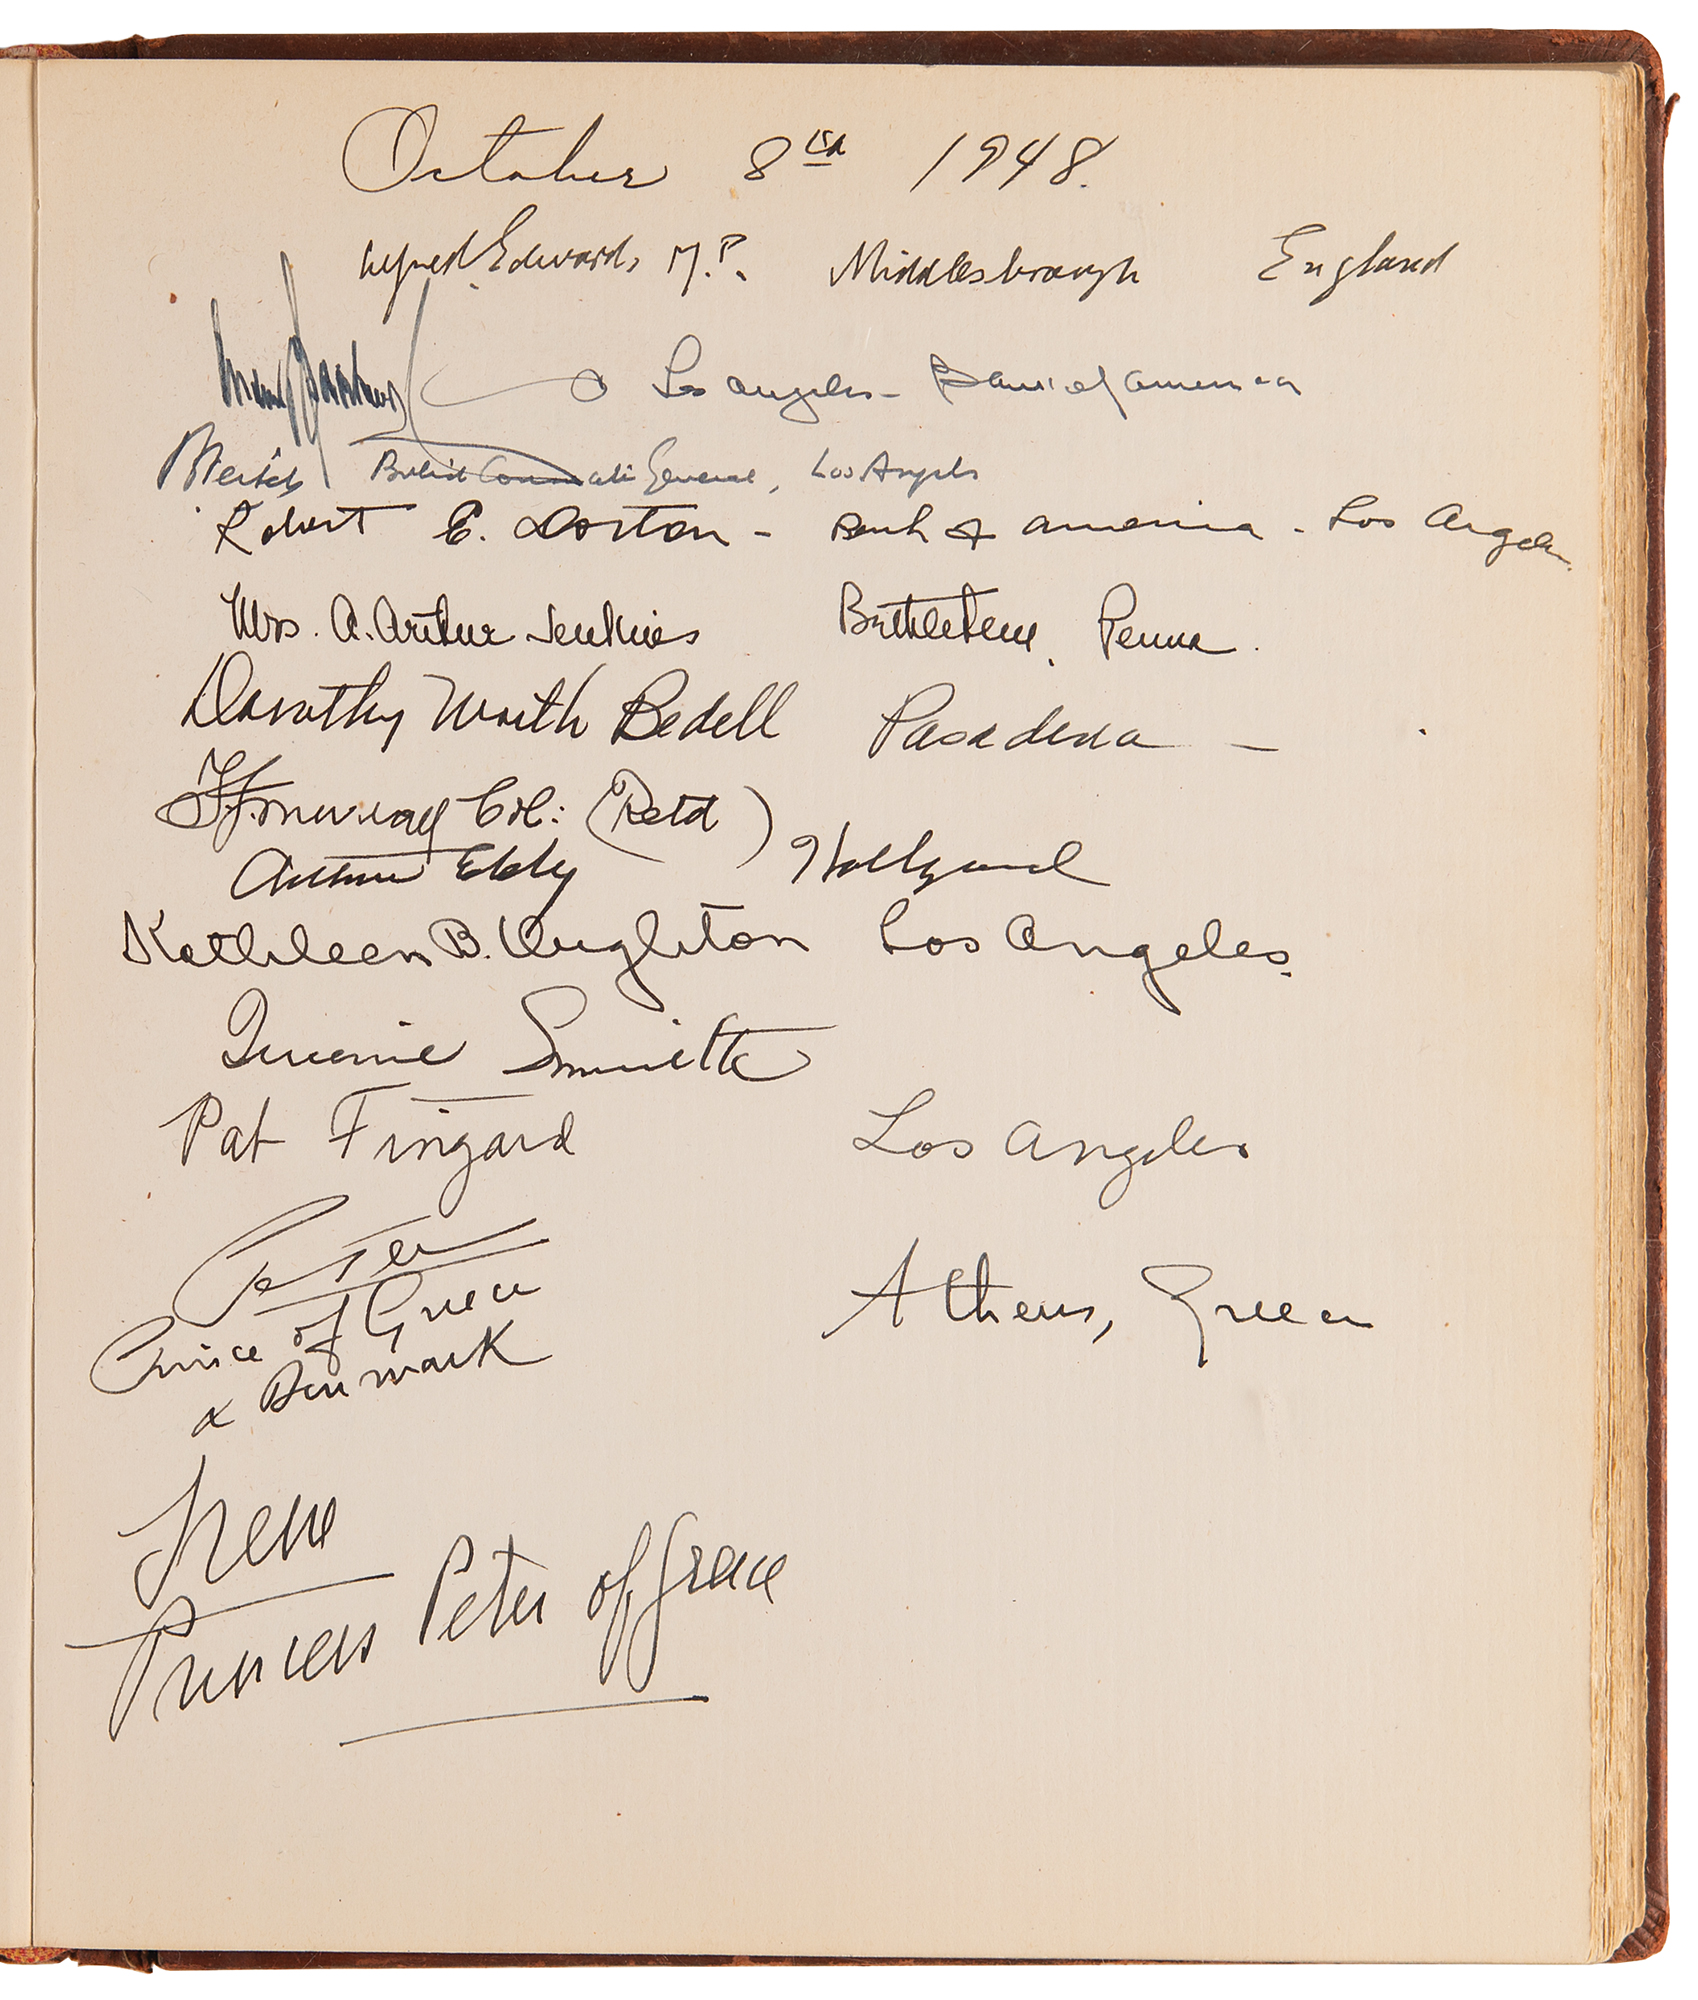 October 8th 1948.
Alfred Edwards M.P. Middlesbrough England
Los Angeles - Bank of America
British Consulate General, Los Angeles
Robert E. Dorton - Bank of America - Los Angeles
Mrs. A. Arthur Jenkins Bethlehem, Penna.
Dorothy Worth Bedell Pasadena -
Murray Col: (Retd)
Arthur Eddy Hollywood
Kathleen B. Los Angeles.
Queenie Smith
Pat Fingard Los Angeles
Peter
Prince of Greece Athens, Greece
& Denmark
Irene
Princess Peter of Greece